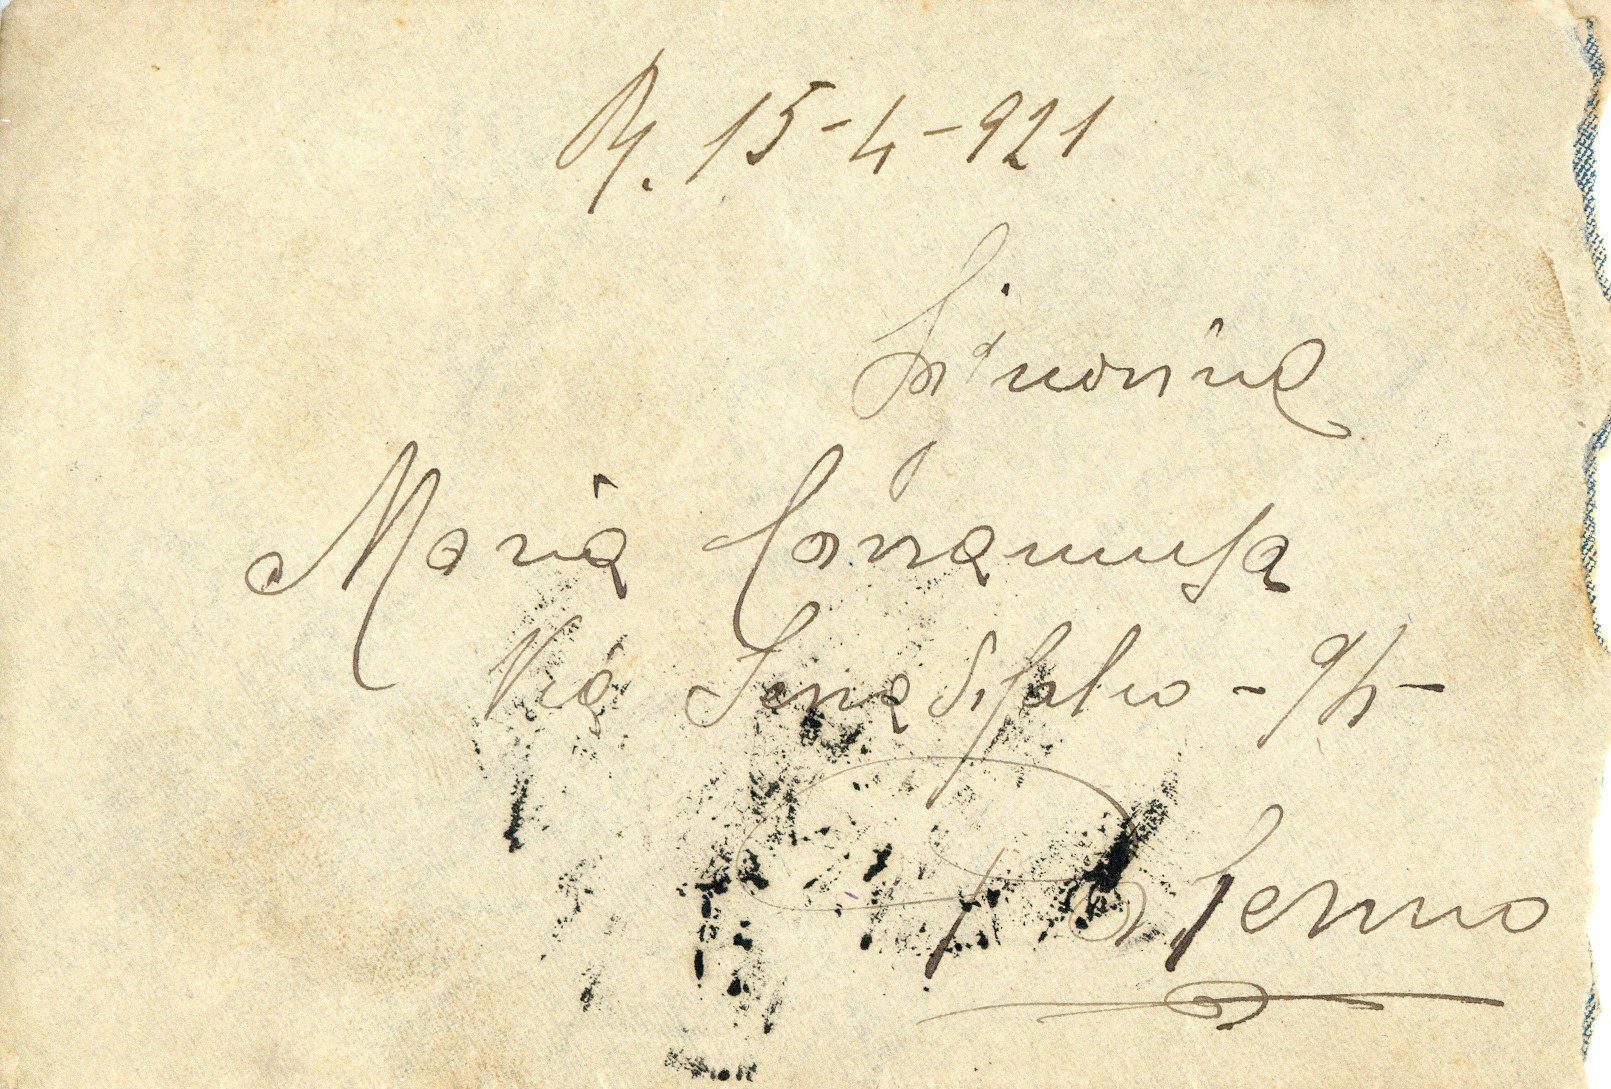 R. 15-4-921
Signorina
Maria Carramusa
Via Serradifalco - 95 -
Palermo